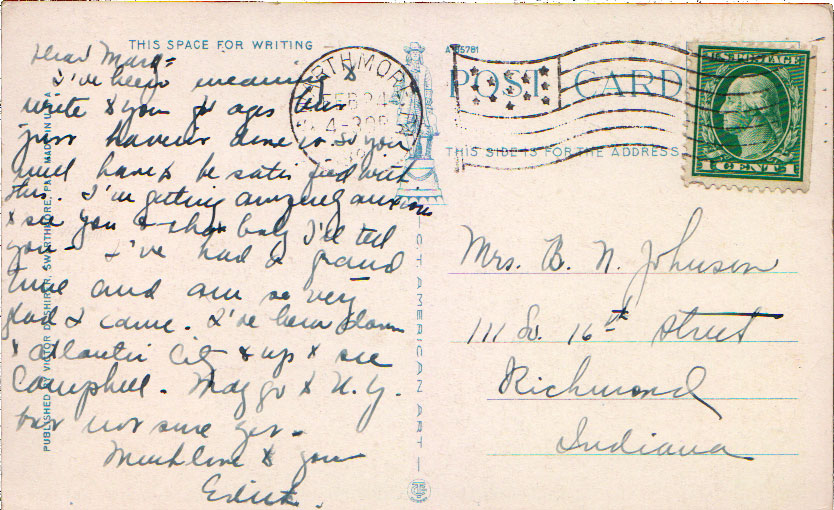 THIS SPACE FOR WRITING
Dear Mary=
I've been meaning to
write to you for ages but
just haven't done so. So you
will have to be satisfied with
this. I'm getting awfully anxious
to see you & that baby I'll tell
you - I've had a grand
time and am so very
glad I came. I've been down
to Atlantic City & up to see
Campbell. May go to N.Y.
but not sure yet -
Much love to you
Edith.
SWARTHMORE
FEB 24
4-30P
A-115781
POST CARD
THIS SIDE IS FOR THE ADDRESS
U.S. POSTAGE
1 CENT 1
Mrs. B. N. Johnson
111 So. 16th Street
Richmond
Indiana
PUBLISHED BY VICTOR D. SHIRER, SWARTHMORE, PA. MADE IN U.S.A.
C.T. AMERICAN ART